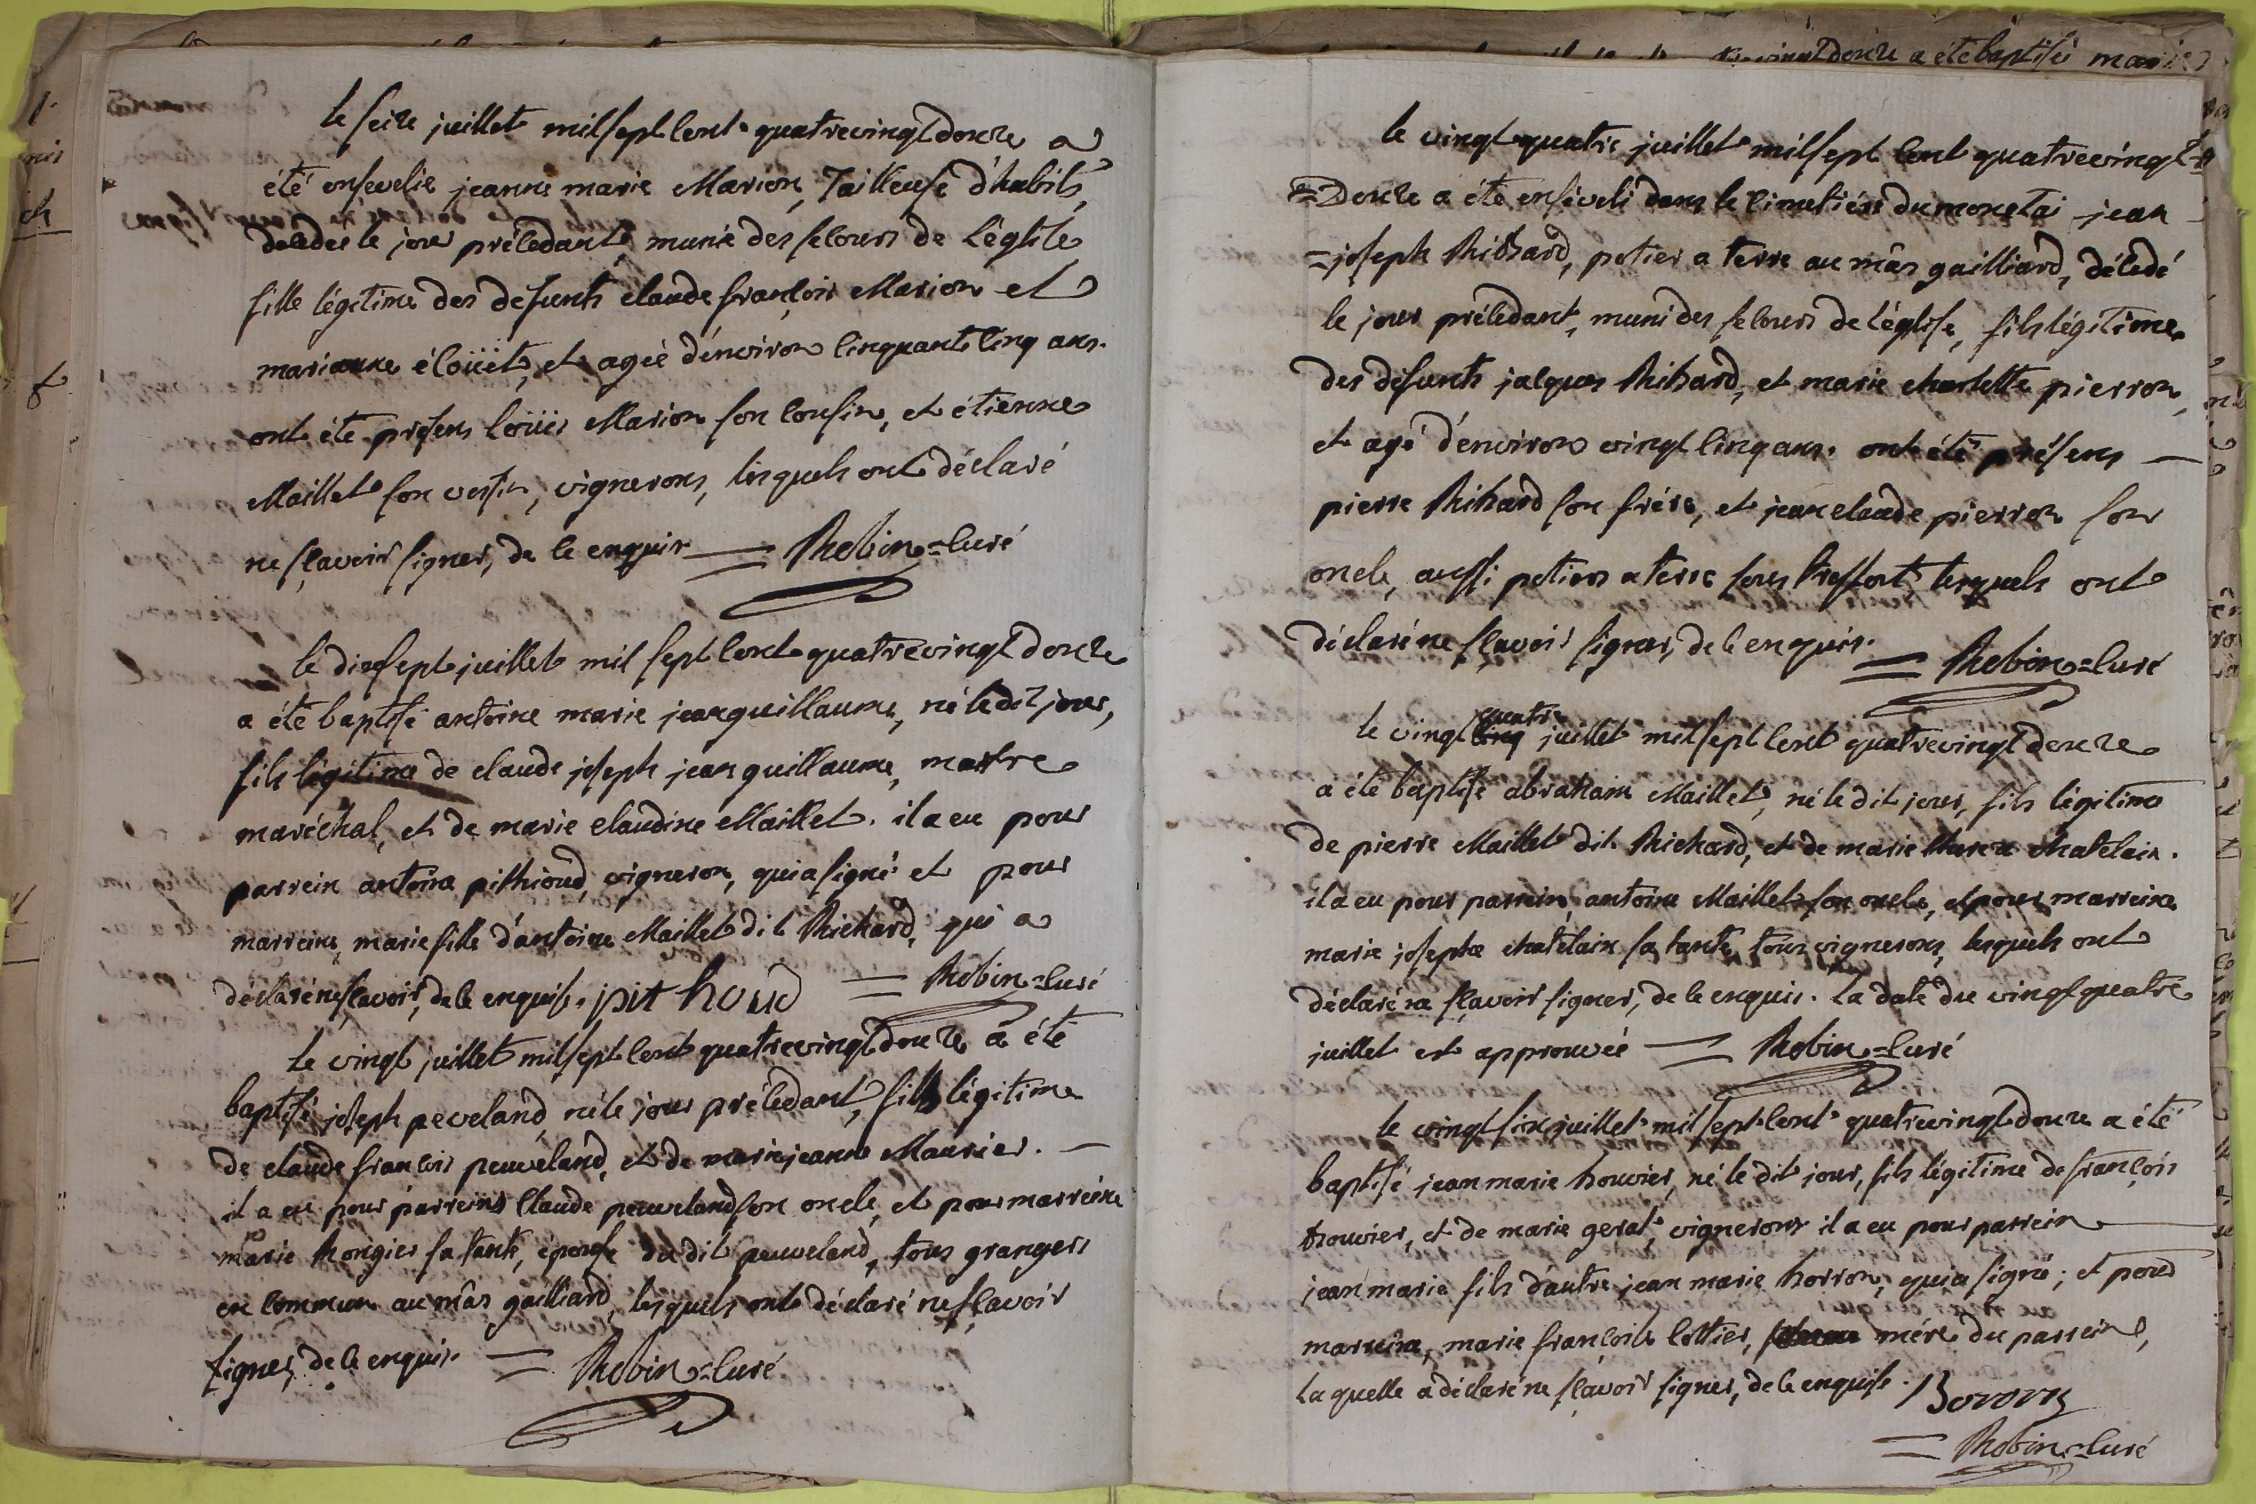 le seize juillet mil sept cent quatrevingt douze a
été ensevelie jeanne marie Marion, Tailleuse d'habits,
décedée le jour précedant, munie des secours de l'église
fille légitime des defunts claude françois Marion et
marianne éloüet, et ageé d'environ cinquante cinq ans.
ont été presens loüis Marion son cousin, et étienne
Maillet son voisin, vignerons, lesquels ont déclaré
ne sçavoir signer, de ce enquis = Robin=curé
le dixsept juillet mil sept cent quatrevingt douze
a été baptisé antoine marie jeanguillaume, né ledit jour,
fils légitime de claude joseph jeanguillaume, maitre
maréchal, et de marie claudine Maillet. il a eu pour
parrein antoine pithioud, vigneron, qui a signé et pour
marreine, marie fille d'antoine Maillet dit Richard, qui a
déclaré ne sçavoir, de ce enquise. pit houd = Robin=curé
le vingt juillet mil sept cent quatrevingt douze a été
baptisé joseph peveland, né le jour précedant, fils légitime
de claude françois peuveland, et de marie jeanne Maurier. —
il a eu pour parrein claude peuveland son oncle, et pour marreine
marie Rongier sa tante, épouse du dit peuveland, tous grangers
en commun au mâs gailliard, lesquels ont déclaré ne sçavoir
signer, de ce enquis. = Robin=curé
douze a été baptisé marie
le vingt quatre juillet mil sept cent quatrevingt=
=Douze a été enséveli dans le cimetiére du monetai jean
=joseph Richard, potier a terre au mâs gailliard, décedé
le jour précedant, muni des secours de l'église, fils légitime
des défunts jacques Richard, et marie charlotte pierron,
et agé d'environ vingt cinq ans. ont été présens —
pierre Richard son frére, et jean claude pierron son
oncle, aussi potiers a terre sous Tressort, lesquels ont
déclaré ne sçavoir signer, de ce enquis. = Robin=curé
quatre
le vingt cinq juillet mil sept cent quatrevingt douze
a été baptisé abraham Maillet, né le dit jour, fils légitime
de pierre Maillet dit Richard, et de marie therese chatelain.
il a eu pour parrein, antoine Maillet son oncle, et pour marreine
marie josephe chatelain sa tante, tous vignerons, lesquels ont
déclaré ne sçavoir signer, de ce enquis. La date du vingt quatre
juillet est approuvée = Robin=curé
le vingt six juillet mil sept cent quatrevingt douze a été
baptisé jean marie bouvier, né le dit jour, fils légitime de françois
bouvier, et de marie gerat, vignerons il a eu pour parrein
jean marie fils d'autre jean marie borron, qui a signé; et pour
marreine, marie françoise cottier, mére du parrein,
laquelle a déclaré ne sçavoir signer, de ce enquise. Boron
= Robin=curé